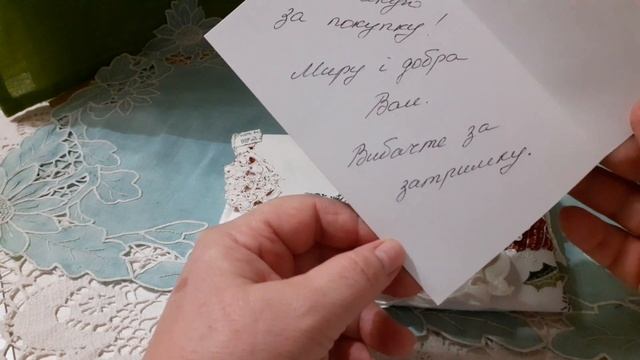 за покупку!
Миру і добра
Вам.
Вибачте за
затримку.